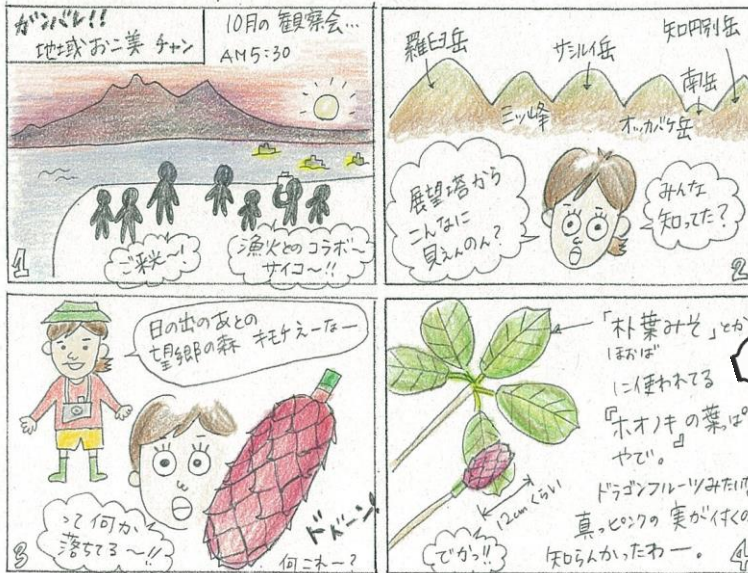 ガンバレ!!
地域おこ美 チャン
10月の 観察会…
AM5:30
ご来光〜!
漁火との コラボ〜
サイコ〜!!
1
羅臼岳
サシルイ岳
知円別岳
三ッ峰
オッカバケ岳
南岳
展望塔から
こんなに
見えんのん?
みんな
知ってた?
2
日の出のあとの
望郷の森 キモチえーなー
って何か
落ちてる〜!!
ドドーン!
何これ〜?
3
「朴葉みそ」とか
ほおば
に使われてる
『ホオノキの葉っぱ』
やで。
12cmくらい
でかっ!!
ドラゴンフルーツみたいな
真っピンクの 実が付くの
知らんかったわー。
4